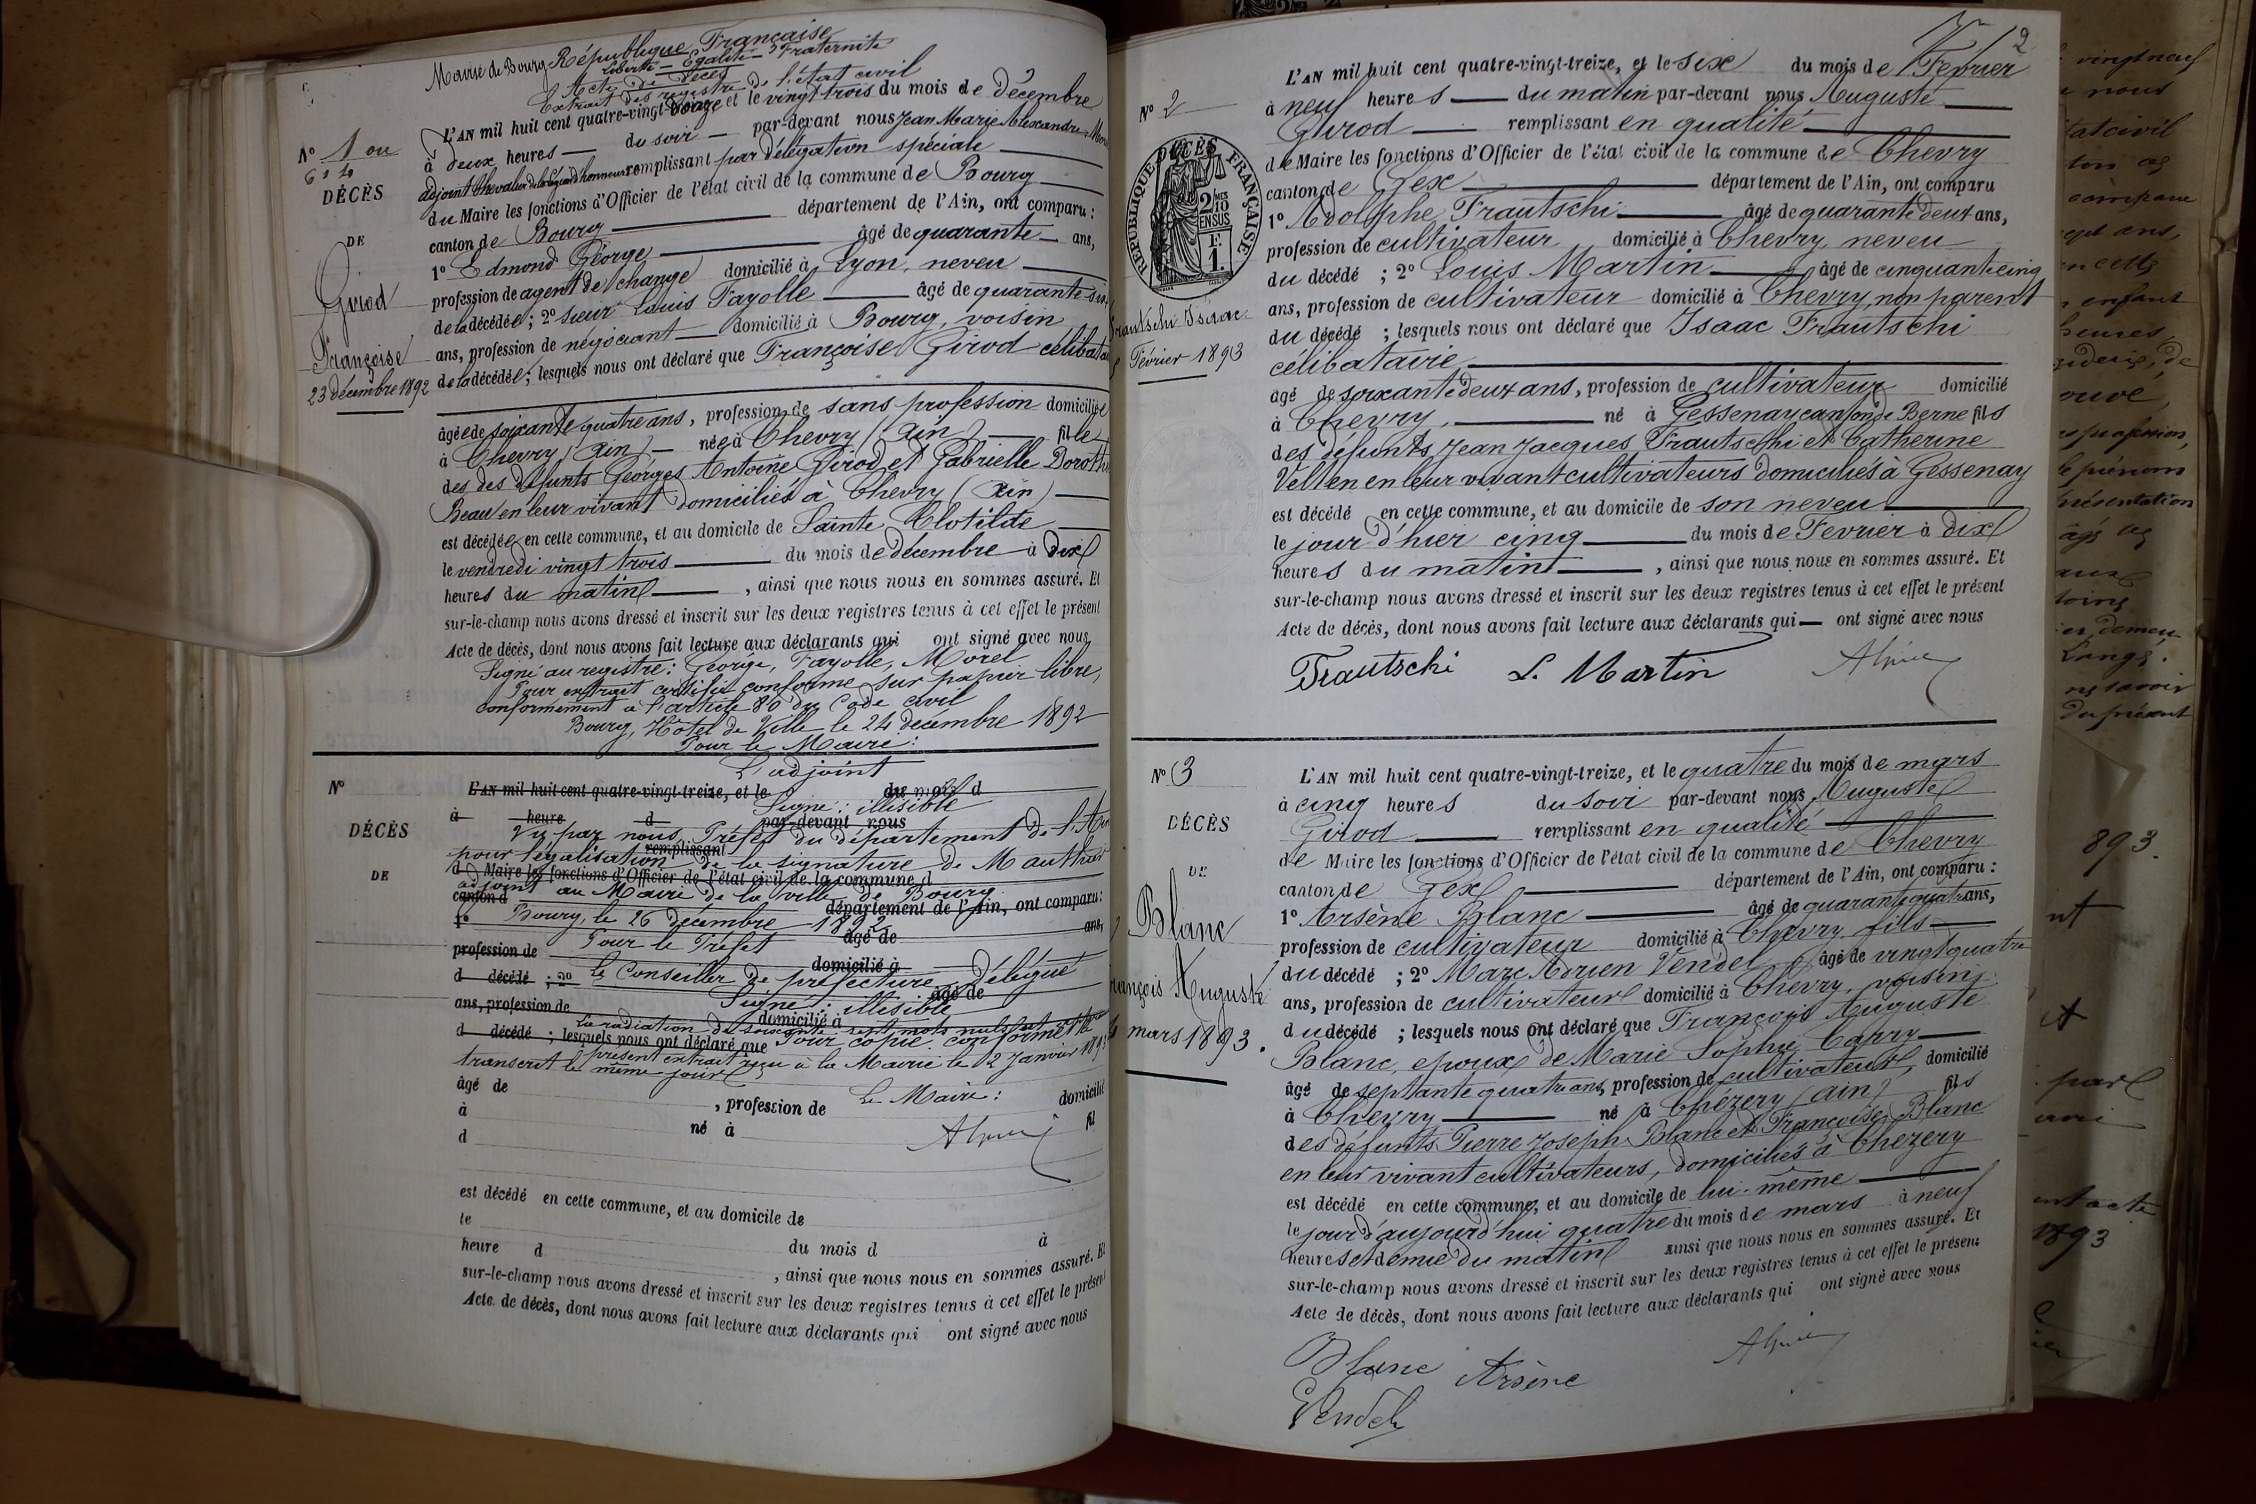 Mairie de Bourg République Française
Liberté – Egalité – Fraternité
Acte de décès
Extrait des registres de l'état civil
L'AN mil huit cent quatre-vingt-douze et le vingt trois du mois de Décembre
à deux heures du soir par-devant nous Jean Marie Alexandre Morel
adjoint chevalier de la légion d'honneur remplissant par délégation spéciale
du Maire les fonctions d'Officier de l'état civil de la commune de Bourg
canton de Bourg département de l'Ain, ont comparu :
1° Edmond George âgé de quarante ans,
profession de agent de change domicilié à Lyon, neveu
de la décédée ; 2° sieur Louis Fayolle âgé de quarante six
ans, profession de négociant domicilié à Bourg, voisin
de la décédée ; lesquels nous ont déclaré que Françoise Girod célibataire
âgée de soixante quatre ans, profession de sans profession domiciliée
à Chevry (Ain) née à Chevry (Ain) fille
des des défunts Georges Antoine Girod et Gabrielle Dorothée
Beau en leur vivant domiciliés à Chevry (Ain)
est décédée en cette commune, et au domicile de Sainte Clotilde
le vendredi vingt trois du mois de décembre à dix
heures du matin , ainsi que nous nous en sommes assuré. Et
sur-le-champ nous avons dressé et inscrit sur les deux registres tenus à cet effet le présent
Acte de décès, dont nous avons fait lecture aux déclarants qui ont signé avec nous
Signé au registre : George, Fayolle, Morel
Pour extrait certifié conforme sur papier libre,
conformément à l'article 80 du Code civil
Bourg, Hôtel de Ville le 24 décembre 1892
Pour le Maire :
L'adjoint
N° 1
DÉCÈS
DE
Girod
Françoise
23 décembre 1892
N°
DÉCÈS
DE
L'AN mil huit cent quatre-vingt-treize, et le du mois d
Signé : illisible
à heure d par-devant nous
Vu par nous Préfet du département de l'Ain
remplissant
pour légalisation de la signature de M
d Maire les fonctions d'Officier de l'état civil de la commune d
adjoint au Maire de la ville de Bourg
canton d département de l'Ain, ont comparu :
1° Bourg, le 26 décembre 1892
âgé de ans,
profession de Pour le Préfet domicilié à
d décédé ; 2° Le Conseiller de préfecture Délégué
âgé de
ans, profession de Signé : illisible
domicilié à
La radiation de soixante sept mots nuls
d décédé ; lesquels nous ont déclaré que Pour copie conforme
présent extrait reçu à la Mairie le 2 Janvier 1893
transcrit le même jour
âgé de , profession de Le Maire : domicilié
à né à fil
d
est décédé en cette commune, et au domicile de
le du mois d à
heure d , ainsi que nous nous en sommes assuré. Et
sur-le-champ nous avons dressé et inscrit sur les deux registres tenus à cet effet le présent
Acte de décès, dont nous avons fait lecture aux déclarants qui ont signé avec nous
2
N° 2
RÉPUBLIQUE FRANÇAISE
DÉCÈS
2/10 EN SUS
Trautschi Isaac
Février 1893
L'AN mil huit cent quatre-vingt-treize, et le six du mois de Février
à neuf heures du matin par-devant nous Auguste
Girod remplissant en qualité
de Maire les fonctions d'Officier de l'état civil de la commune de Chevry
canton de Gex département de l'Ain, ont comparu
1° Adolphe Trautschi âgé de quarante deux ans,
profession de cultivateur domicilié à Chevry neveu
du décédé ; 2° Louis Martin âgé de cinquante cinq
ans, profession de cultivateur domicilié à Chevry non parent
du décédé ; lesquels nous ont déclaré que Isaac Trautschi
célibataire
âgé de soixante deux ans, profession de cultivateur domicilié
à Chevry, né à Gessenay canton de Berne fils
des défunts Jean Jacques Trautschi et Catherine
Velten en leur vivant cultivateurs domiciliés à Gessenay
est décédé en cette commune, et au domicile de son neveu
le jour d'hier cinq du mois de Février à dix
heures du matin , ainsi que nous nous en sommes assuré. Et
sur-le-champ nous avons dressé et inscrit sur les deux registres tenus à cet effet le présent
Acte de décès, dont nous avons fait lecture aux déclarants qui ont signé avec nous
Trautschi L. Martin
N° 3
DÉCÈS
DE
Blanc
François Auguste
4 mars 1893.
L'AN mil huit cent quatre-vingt-treize, et le quatre du mois de mars
à cinq heures du soir par-devant nous Auguste
Girod remplissant en qualité
de Maire les fonctions d'Officier de l'état civil de la commune de Chevry
canton de Gex département de l'Ain, ont comparu :
1° Arsène Blanc âgé de quarante quatre ans,
profession de cultivateur domicilié à Chevry fils
du décédé ; 2° Marc Adrien Vendel âgé de vingt quatre
ans, profession de cultivateur domicilié à Chevry, voisin
du décédé ; lesquels nous ont déclaré que François Auguste
Blanc, époux de Marie Sophie Carry
âgé de septante quatre ans, profession de cultivateur, domicilié
à Chevry né à Chézery (Ain) fils
des défunts Pierre Joseph Blanc et Françoise Blanc
en leur vivant cultivateurs, domiciliés à Chézery
est décédé en cette commune, et au domicile de lui-même
le jour d'aujourd'hui quatre du mois de mars à neuf
heures et demie du matin ainsi que nous nous en sommes assuré. Et
sur-le-champ nous avons dressé et inscrit sur les deux registres tenus à cet effet le présent
Acte de décès, dont nous avons fait lecture aux déclarants qui ont signé avec nous
Blanc Arsène
Vendel